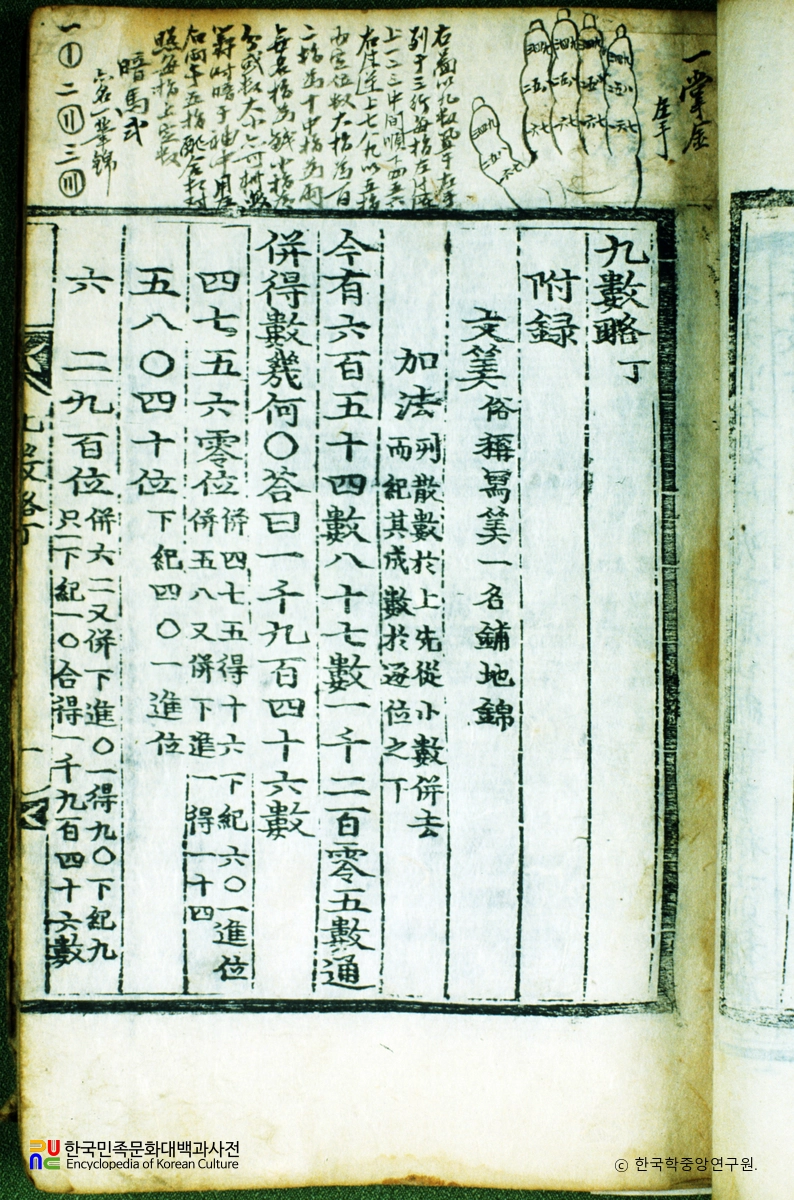 一掌金
左手
右圖以九數置于左手
列于三行每指左邊
上一二三中間順下四五六
右邊逆上七八九以五指
內定位數大指為百
二指為十中指為兩
無名指為錢小指為
暗馬式
一①二〢三〣
九數略丁
附録
文筭俗稱寫筭一名鋪地錦
加法列散數於上先從小數併去
而紀其成數於逐位之下
今有六百五十四數八十七數一千二百零五數通
併得數幾何〇答曰一千九百四十六數
四七五六零位併四七五得十六下紀六〇一進位
併五八又併下進一得一十四
五八〇四十位下紀四〇一進位
六 二九百位併六二又併下進〇一得九〇下紀九
只一下紀一〇合得一千九百四十六數
九數略丁
一
한국민족문화대백과사전
Encyclopedia of Korean Culture
ⓒ 한국학중앙연구원.